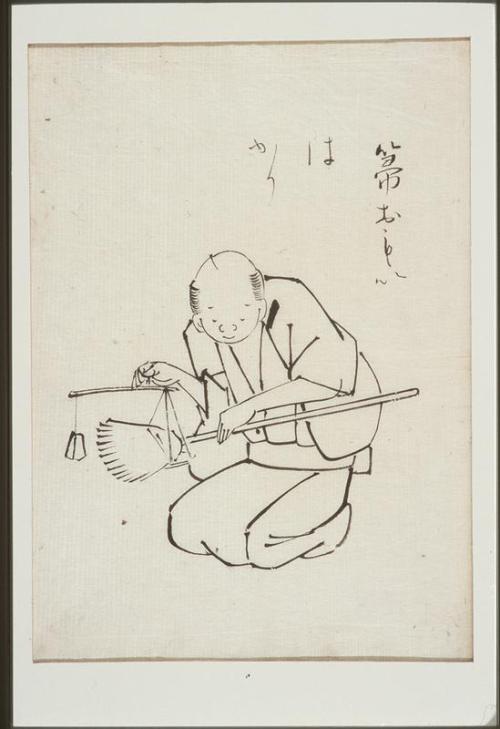 箒おもい
は
かり